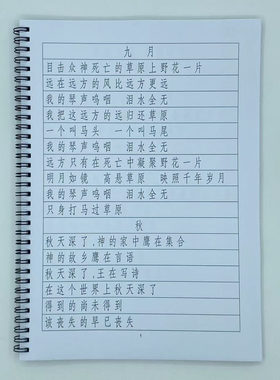 九 月
目击众神死亡的草原上野花一片
远在远方的风比远方更远
我的琴声呜咽 泪水全无
我把这远方的远归还草原
一个叫马头 一个叫马尾
我的琴声呜咽 泪水全无
远方只有在死亡中凝聚野花一片
明月如镜 高悬草原 映照千年岁月
我的琴声呜咽 泪水全无
只身打马过草原
秋
秋天深了,神的家中鹰在集合
神的故乡鹰在言语
秋天深了,王在写诗
在这个世界上秋天深了
得到的尚未得到
该丧失的早已丧失
1